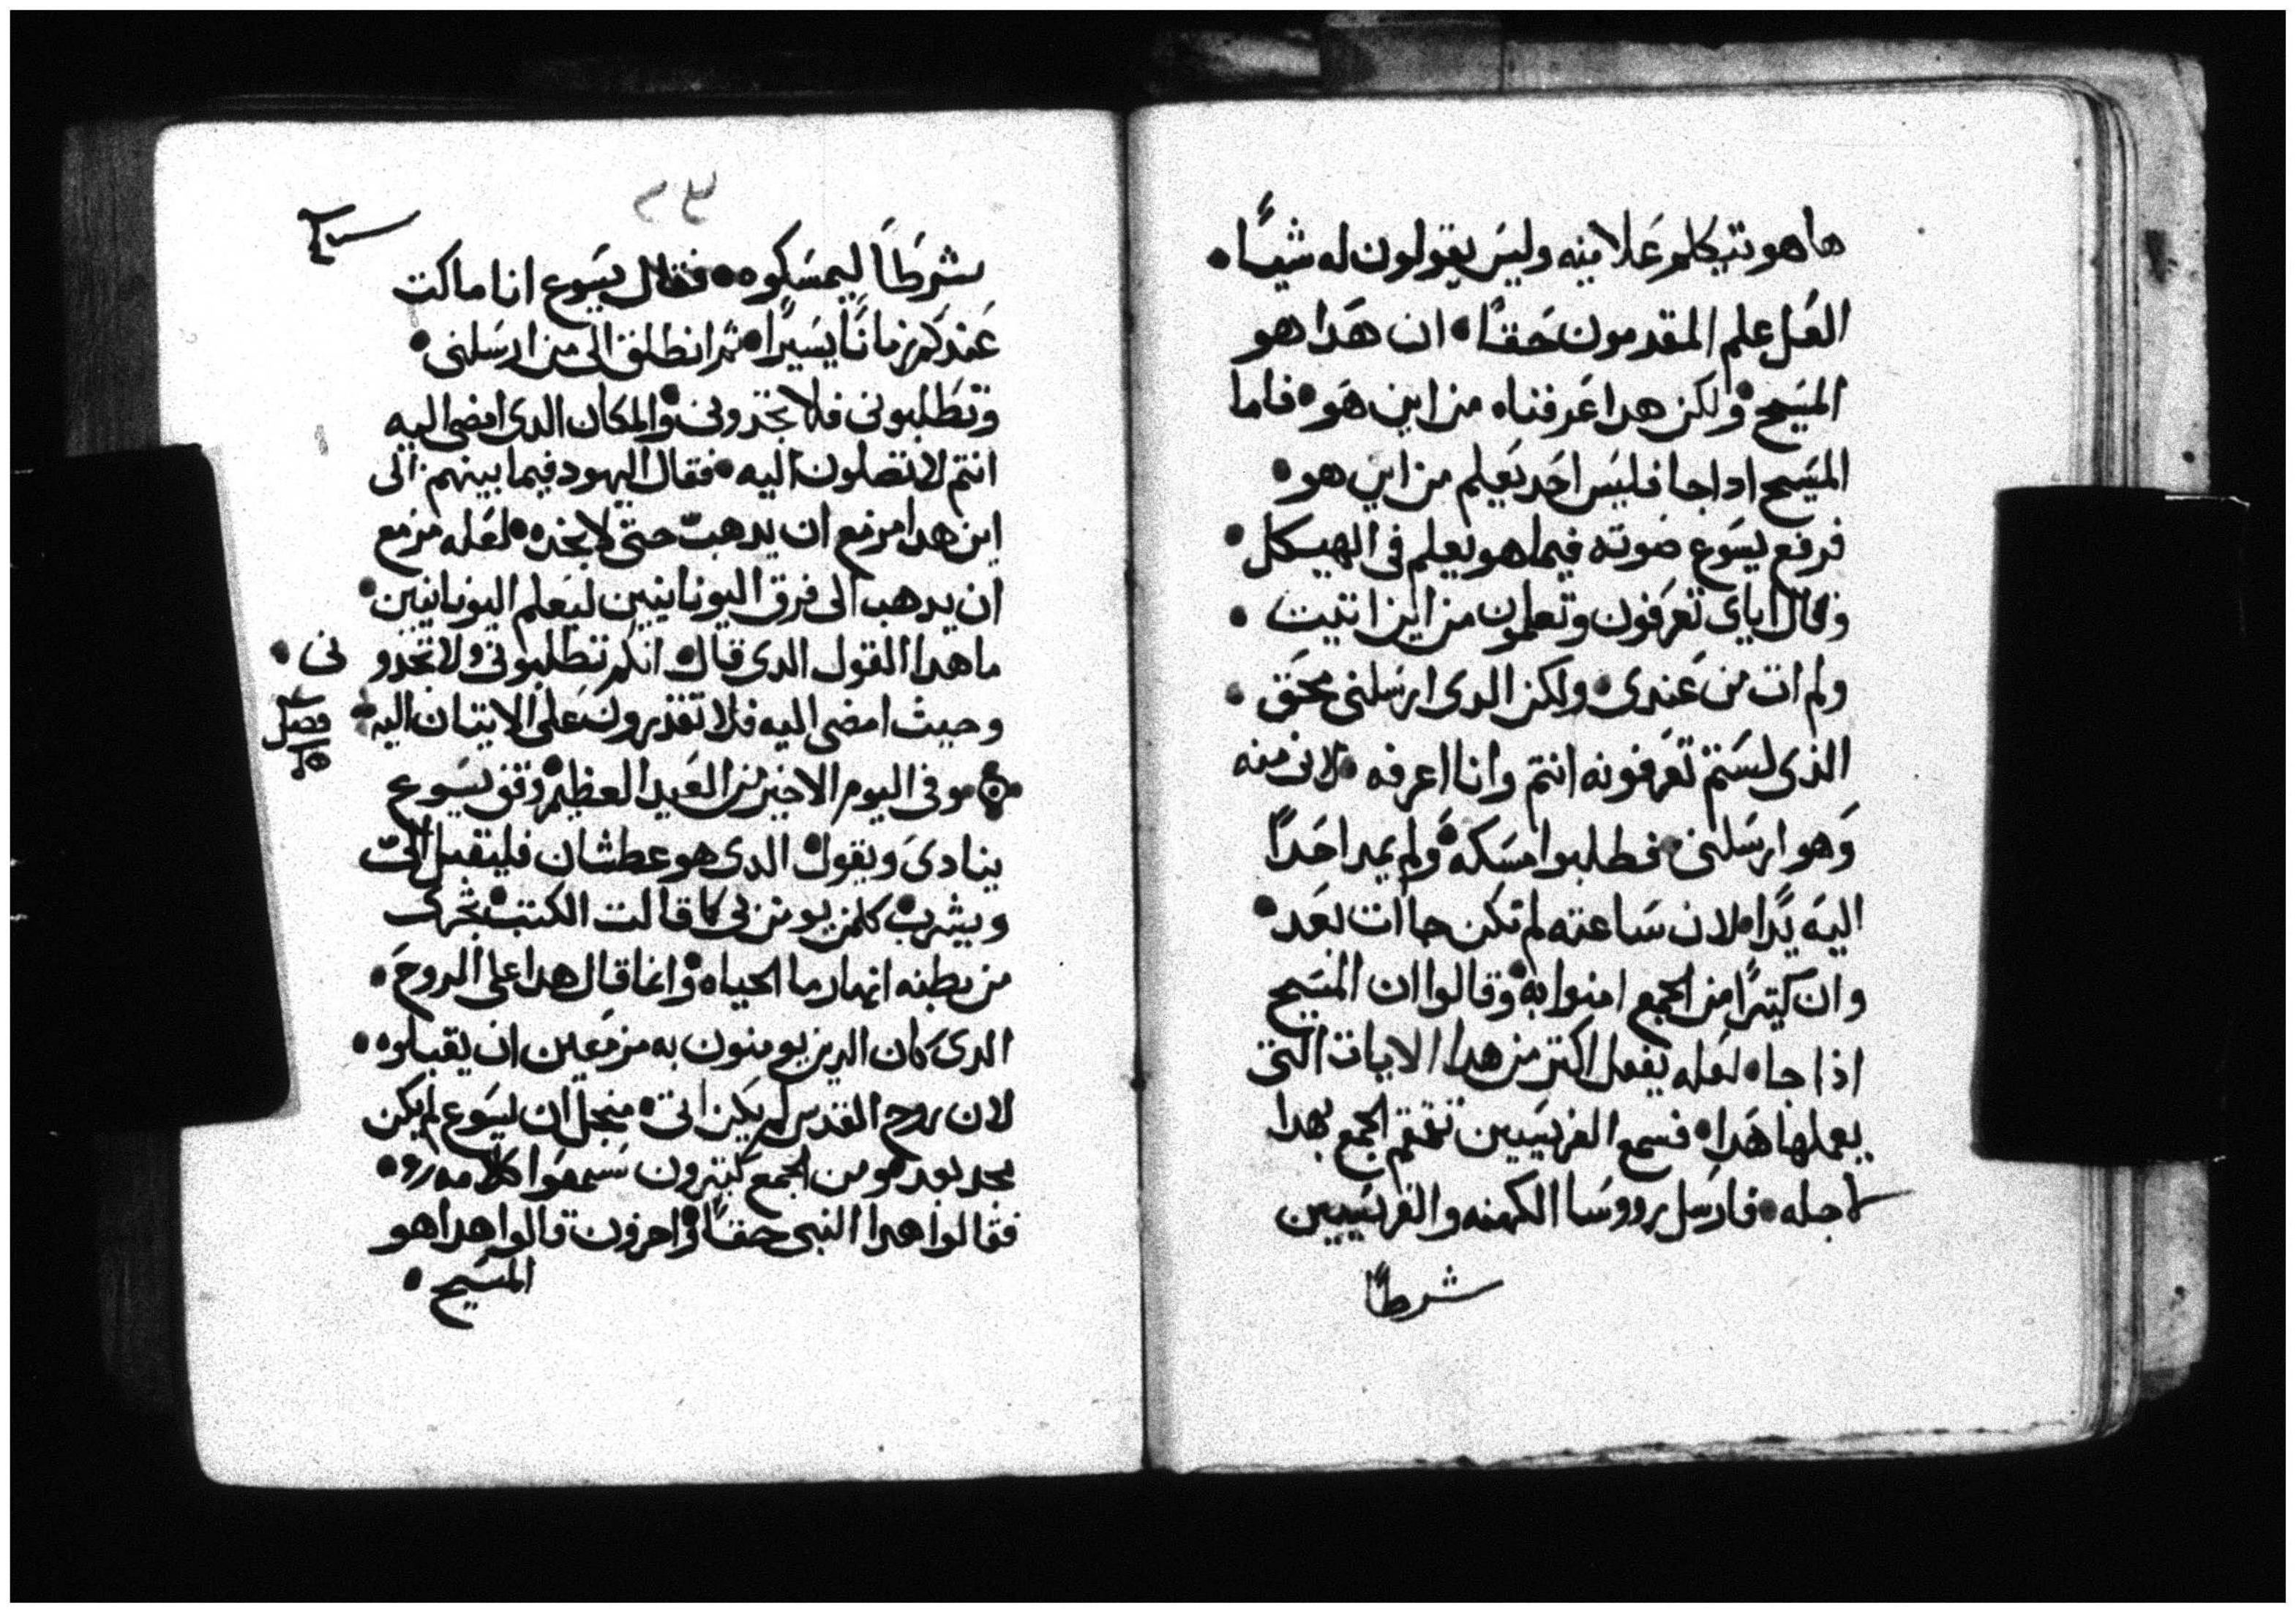 ها هو يتكلم علانيه وليس يقولون له شيا •
العل علم المقدمون حقا • ان هدا هو
المسيح • ولكن هدا عرفناه من اين هو • فاما
المسيح ادا جا فليس احد يعلم من اين هو •
فرفع يسوع صوته فيما هو يعلم في الهيكل •
وقال اياى تعرفون وتعلمون من اين اتيت •
ولم ات من عندى • ولكن الدى ارسلنى محق •
الذى لستم تعرفونه انتم وانا اعرفه • لانى منه
وهو ارسلنى • فطلبوا مسكه • ولم يمد احدًا
اليه يدًا • لان ساعته لم تكن جاات بعد •
وان كتيرًا من الجمع امنوا به • وقالوا ان المسيح
اذا جا • لعله يفعل اكتر من هدا الايات التى
يعملها هدا • فسمع الفريسيين تقمقم الجمع بهدا
لاجله • فارسل رووسا الكهنه والفريسيين
شرطًا
٢٤
شرطًا ليمسكوه •• فقال يسوع انا ماكت
عندكم زمانًا يسيرًا • ثم انطلق الى من ارسلنى •
وتطلبونى فلا تجدونى • والمكان الدى امضى اليه
انتم لا تصلون اليه • فقال اليهود فيما بينهم الى
اين هدا مزمع ان يدهب حتى لا نجده • لعله مزمع
ان يدهب الى فرق اليونانيين ليعلم اليونانيين •
ما هدا القول الدى قال • انكم تطلبونى ولا تجدو نى •
وحيث امضى اليه فلا تقدرون على الاتيان اليه
فصل
وفى اليوم الاخير من العيد العظيم • وقف يسوع
ينادى ويقول • الدى هو عطشان فليقبل الىّ
ويشرب • كلمن يومن بى كما قالت الكتب • تجرى
من بطنه انهار ما الحياه • وانما قال هدا على الروح •
الدى كان الدين يومنون به مزمعين ان يقبلوه •
لان روح القدس لم يكن اتى • منجل ان يسوع لم يكن
مجد بعد • ومن الجمع كتيرون سمعوا كلامه •
فقالوا هدا النبى حقًا • واخرون قالوا هدا هو
المسيح •